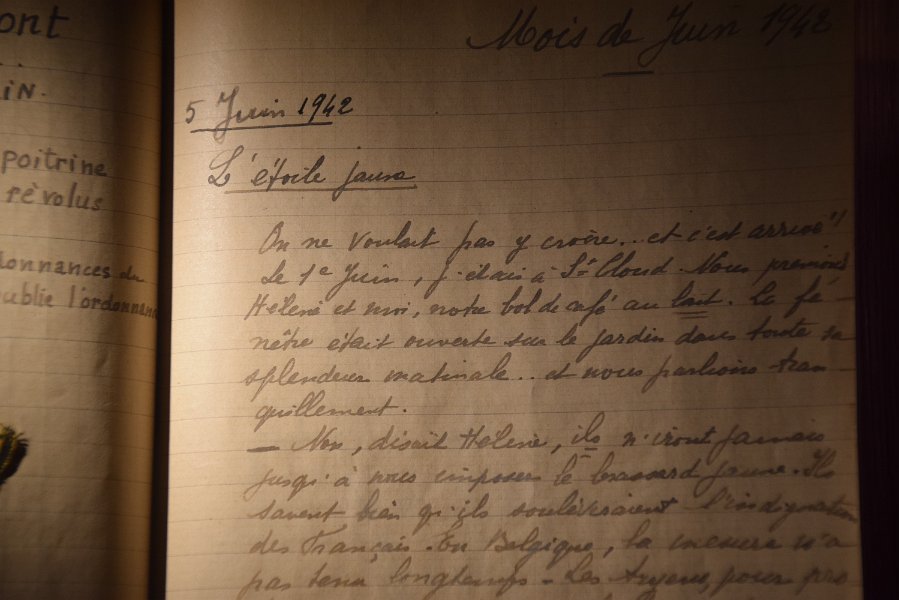 ont
IN.
poitrine
révolus
donnances du
publie l'ordonnance
Mois de Juin 1942
5 Juin 1942
L'étoile jaune
On ne voulait pas y croire... et c'est arrivé!!
Le 1e Juin, j'étais à St Cloud. Nous prenions
Hélène et moi, notre bol de café au lait. La fe
nêtre était ouverte sur le jardin dans toute sa
splendeur matinale... et nous parlions tran
quillement.
— Non, disait Hélène, ils n'iront jamais
jusqu'à nous imposer le brassard jaune. Ils
savent bien qu'ils soulèveraient l'indignation
des Français. En Belgique, la mesure n'a
pas tenu longtemps - Les Aryens, pour pro